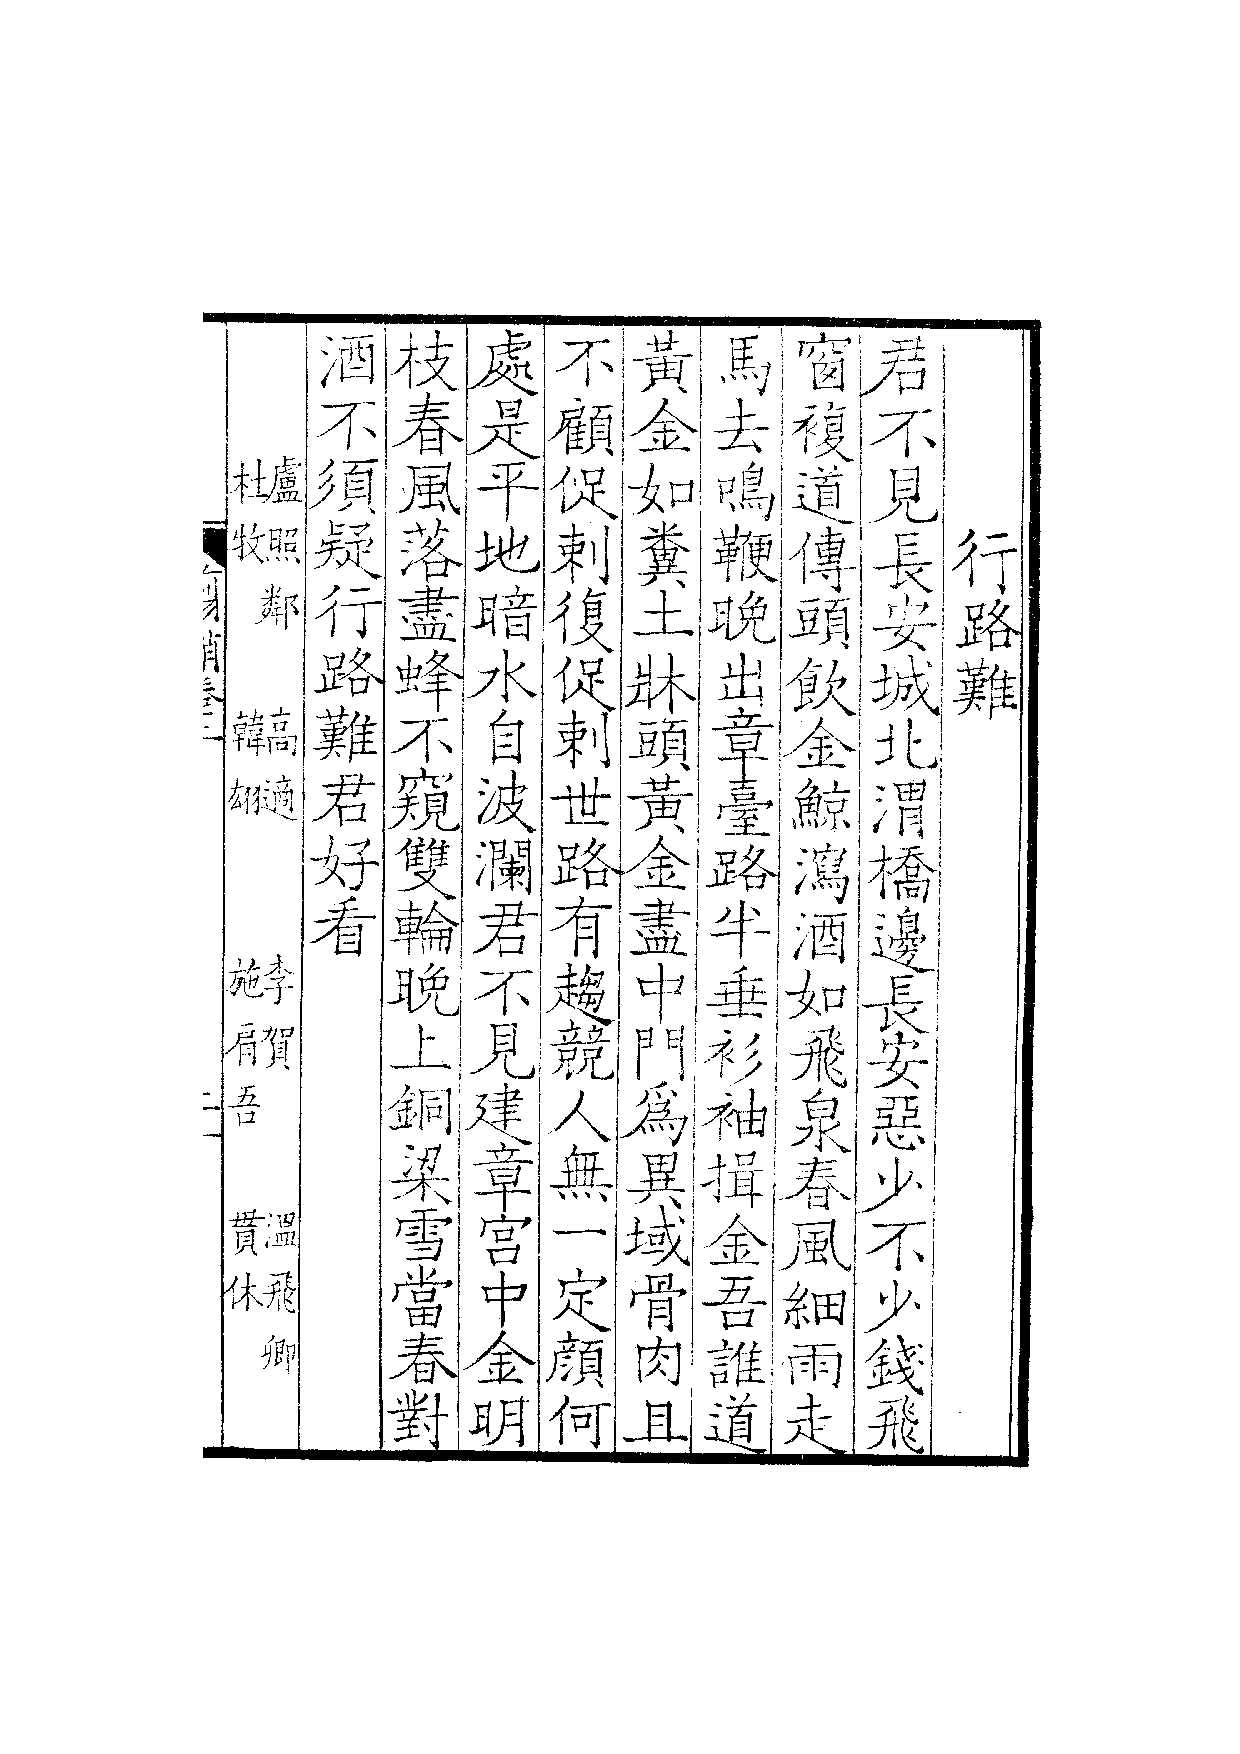 行路難
君不見長安城北渭橋邊長安惡少不少錢飛
窗複道傳頭飲金鯨瀉酒如飛泉春風細雨走
馬去鳴鞭晚出章臺路半垂衫袖揖金吾誰道
黃金如糞土牀頭黃金盡中門爲異域骨肉且
不顧促刺復促刺世路有趨競人無一定顏何
處是平地暗水自波瀾君不見建章宮中金明
枝春風落盡蜂不窺雙輪晚上銅梁雪當春對
酒不須疑行路難君好看
盧照鄰 高適 李賀 溫飛卿
杜牧 韓翃 施肩吾 貫休